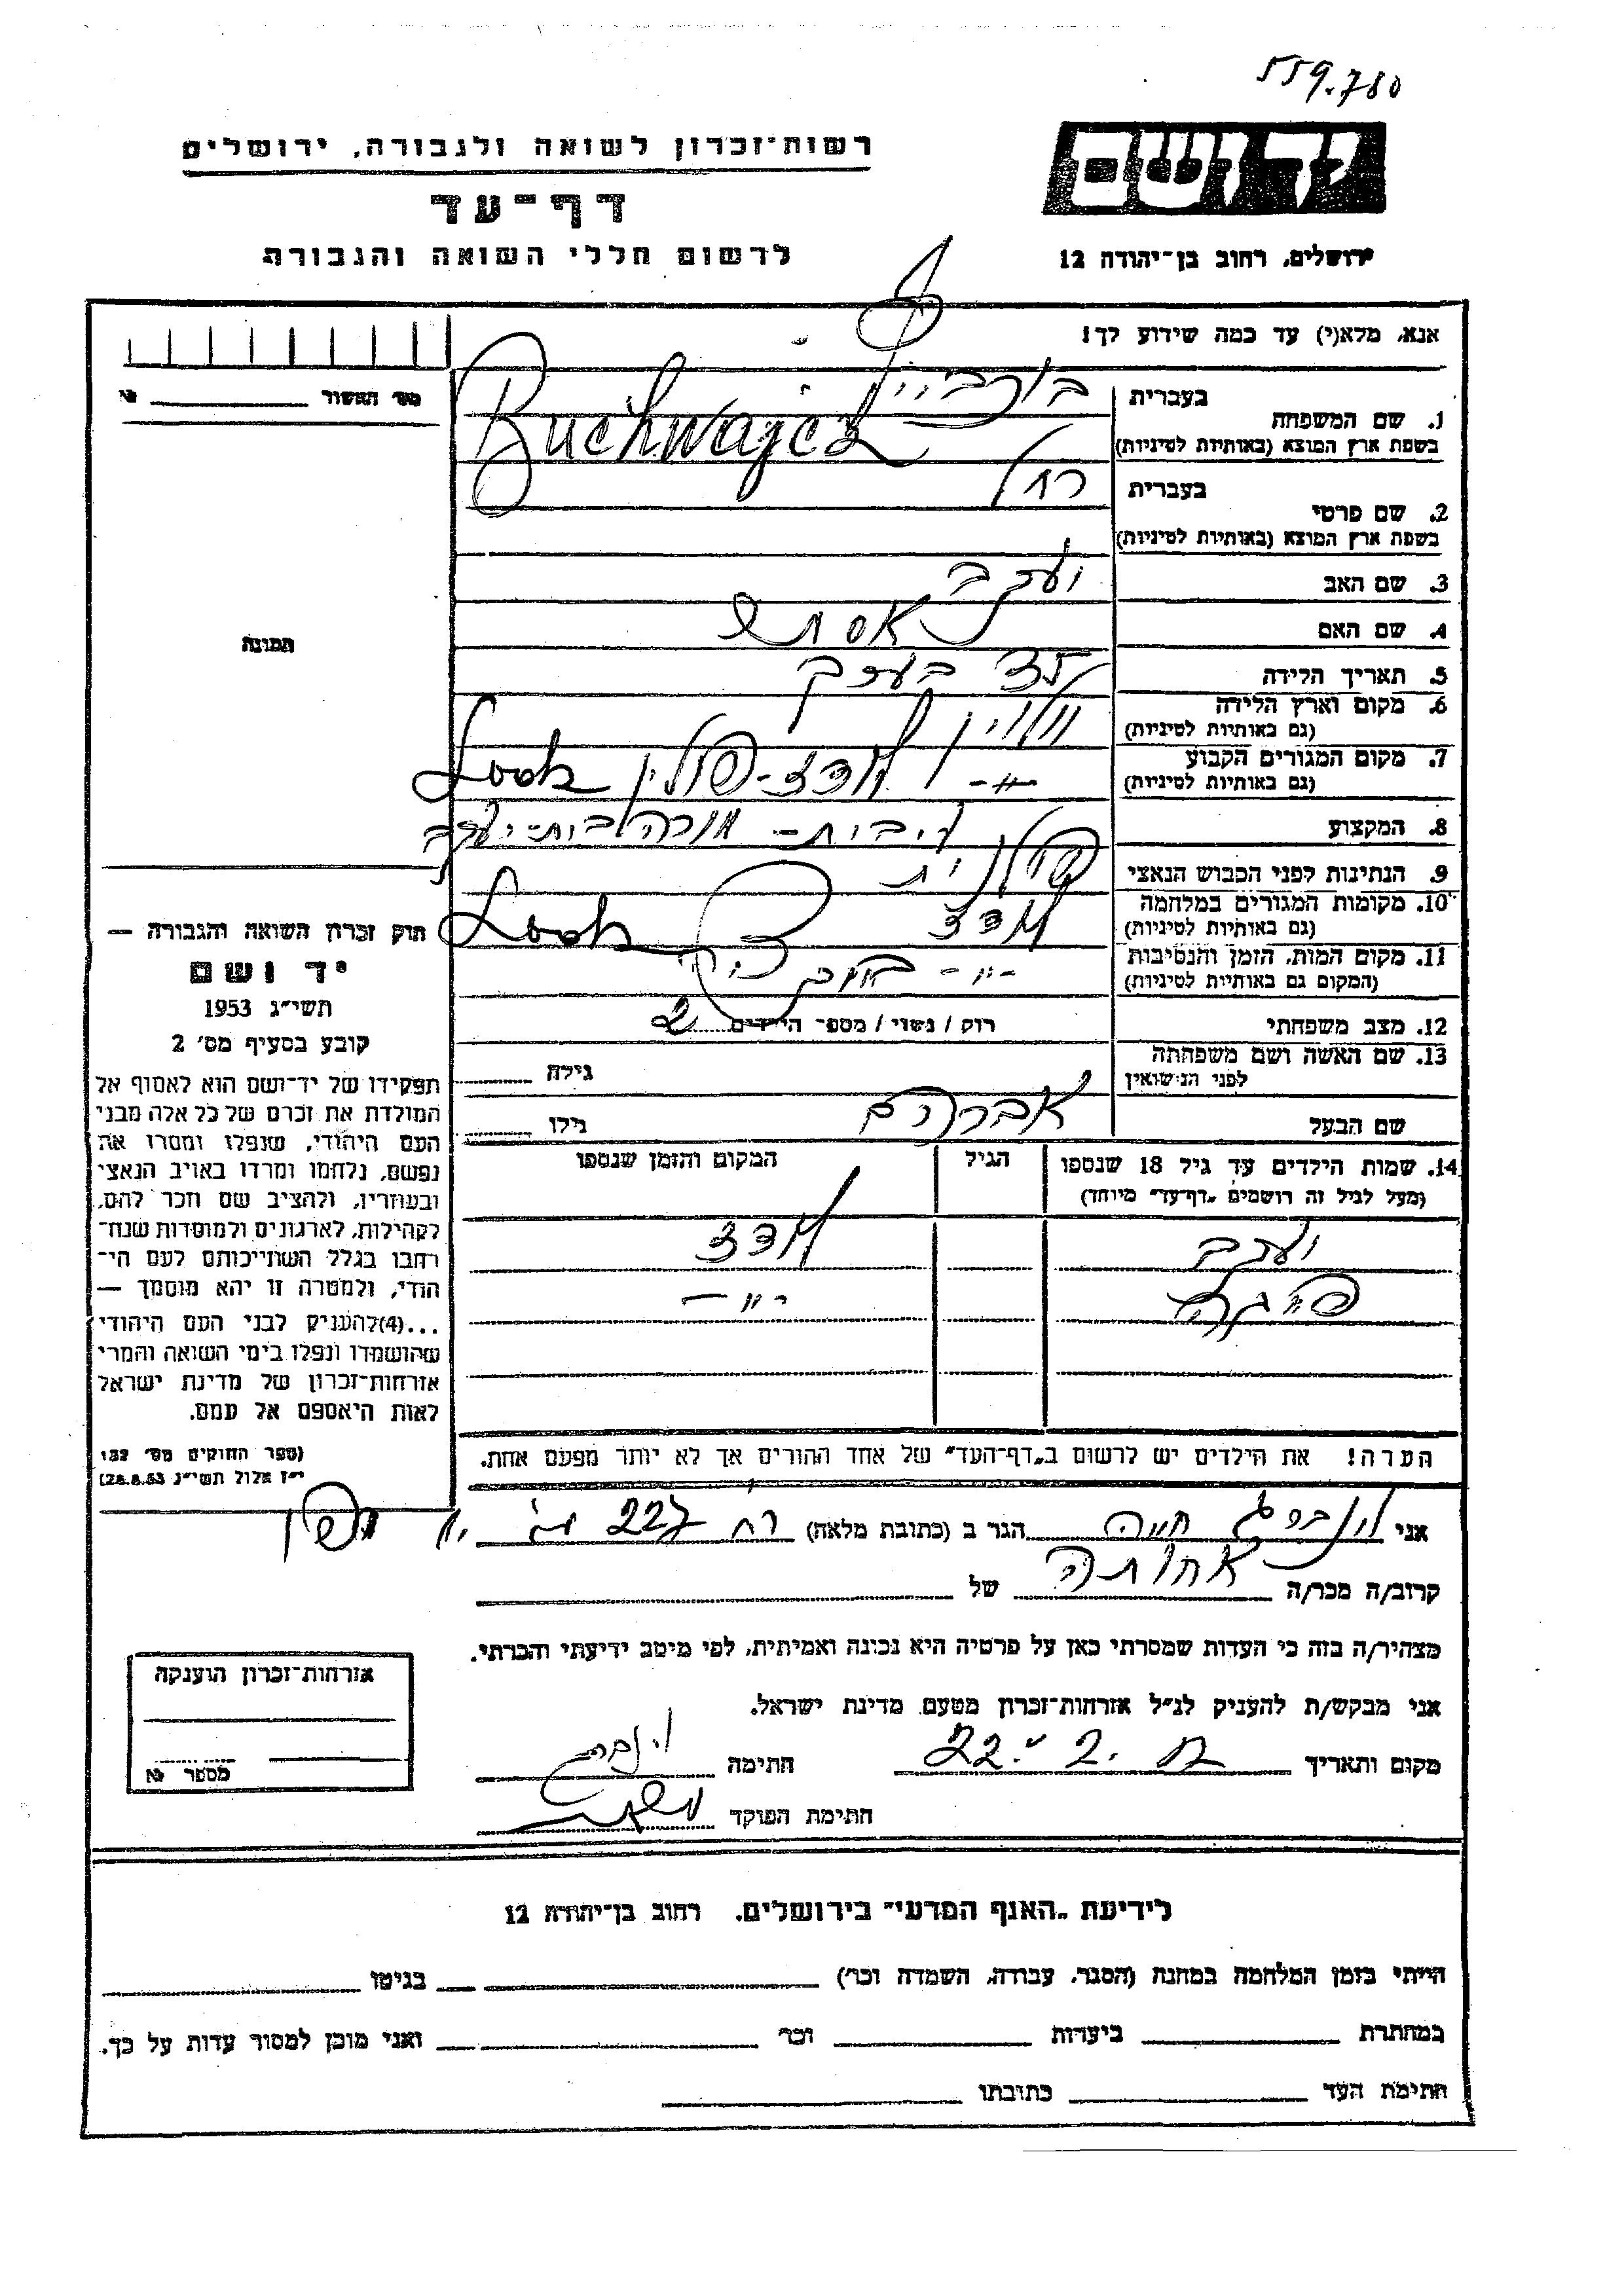 559.780
ידושם
ירושלים, רחוב בן-יהודה 12
רשות-זכרון לשואה ולגבורה, ירושלים
דף-עד
לרשום חללי השואה והגבורה
אנא, מלא(י) עד כמה שידוע לך!
מס' האשור №
1. שם המשפחה
בעברית
בשפת ארץ המוצא (באותיות לטיניות) Buchwajcz
2. שם פרטי
בעברית רחל
בשפת ארץ המוצא (באותיות לטיניות)
3. שם האב יעקב
4. שם האם אסתר
5. תאריך הלידה 35 בערך
6. מקום וארץ הלידה
(גם באותיות לטיניות)
7. מקום המגורים הקבוע לודז-פולין
(גם באותיות לטיניות)
8. המקצוע
9. הנתינות לפני הכבוש הנאצי פולנית
10. מקומות המגורים במלחמה לודז
(גם באותיות לטיניות)
11. מקום המות, הזמן והנסיבות -״-
(המקום גם באותיות לטיניות)
12. מצב משפחתי רוק / נשוי / מספר הילדים 2
13. שם האשה ושם משפחתה
לפני הנישואין גילה
שם הבעל אברהם גילו
14. שמות הילדים עד גיל 18 שנספו הגיל המקום והזמן שנספו
(מעל לגיל זה רושמים "דף-עד" מיוחד)
יעקב לודז
פייגה -״-
הערה! את הילדים יש לרשום ב"דף-העד" של אחד ההורים אך לא יותר מפעם אחת.
תמונה
חוק זכרון השואה והגבורה —
יד ושם
תשי"ג 1953
קובע בסעיף מס' 2
תפקידו של יד-ושם הוא לאסוף אל
המולדת את זכרם של כל אלה מבני
העם היהודי, שנפלו ומסרו את
נפשם, נלחמו ומרדו באויב הנאצי
ובעוזריו, ולהציב שם וזכר להם,
לקהילות, לארגונים ולמוסדות שנח-
רחבו בגלל השתייכותם לעם הי-
הודי, ולמטרה זו יהא מוסמך —
...(4)להעניק לבני העם היהודי
שהושמדו ונפלו בימי השואה והמרי
אזרחות-זכרון של מדינת ישראל
לאות היאספם אל עמם.
(ספר החוקים מס' 132
י"ז אלול תשי"ג 28.8.53)
אני חיה הגר ב (כתובת מלאה) רח 227
קרוב/ה מכר/ה אחותה של
מצהיר/ה בזה כי העדות שמסרתי כאן על פרטיה היא נכונה ואמיתית, לפי מיטב ידיעתי והכרתי.
אני מבקש/ת להעניק לנ"ל אזרחות-זכרון מטעם מדינת ישראל.
מקום ותאריך חתימה
חתימת הפוקד
אזרחות-זכרון הוענקה
מספר №
לידיעת "האגף המדעי" בירושלים. רחוב בן-יהודה 12
הייתי בזמן המלחמה במחנה (הסגר, עבודה, השמדה וכו') בגיטו
במחתרת ביערות וכו' ואני מוכן למסור עדות על כך.
חתימת העד כתובתו